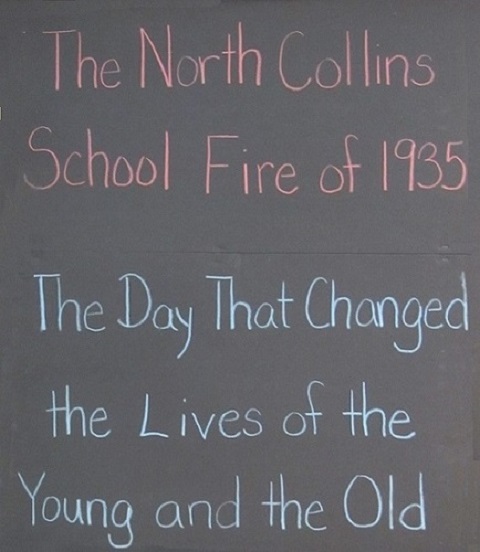 The North Collins
School Fire of 1935
The Day That Changed
the Lives of the
Young and the Old